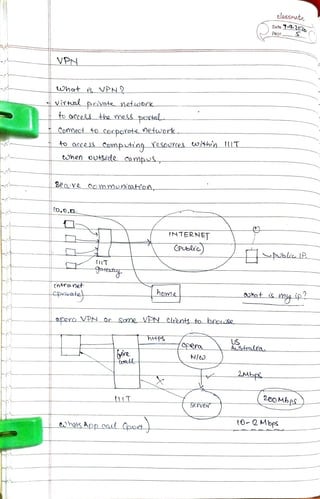 classmate
Date
Page 5
VPN
What is VPN?
- virtual private network
to access the mess portal
- Connect to corporate network.
- to access computing resources within IIIT
when outside campus.
Secure communication.
10.0.0.
INTERNET
(public)
public IP.
IIIT
gateway
intranet
(private)
home
what is my ip?
opera VPN or some VPN clients to browse
https
opera
N/W
US
Australia
fire
wall
2Mbps
X
SERVER
200Mbps
IIIT
WhatsApp call (port)
10-12 Mbps